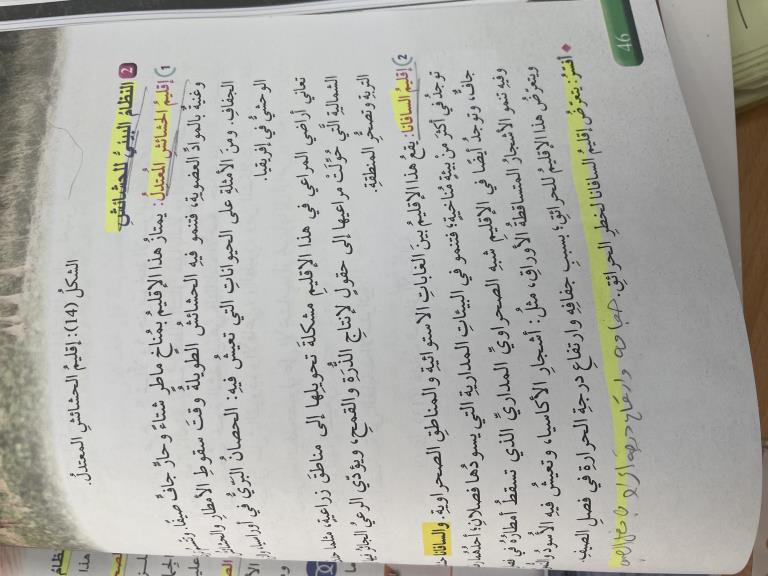 الشكلُ (14): إقليمُ الحشائشِ المعتدلُ.
2 النظامُ البيئيُّ للحشائشِ
1) إقليمُ الحشائشِ المعتدلُ: يمتازُ هذا الإقليمُ بمُناخٍ ماطرٍ شتاءً وحارٍّ جافٍّ صيفًا،
وغنيةٌ بالموادِّ العضويةِ، فتنمو فيهِ الحشائشُ الطويلةُ وقتَ سقوطِ الأمطارِ
الجفافِ. ومنَ الأمثلةِ على الحيواناتِ التي تعيشُ فيهِ: الحصانُ البرّيُّ في
الوحشيُّ في إفريقيا.
تعاني أراضي المراعي في هذا الإقليمِ مشكلةَ تحويلِها إلى مناطقَ زراعيةٍ،
الشماليةِ التي حُوِّلَتْ مراعيها إلى حقولٍ لإنتاجِ الذُّرةِ والقمحِ، ويؤدّي الرعيُ
التربةِ وتصحُّرِ المنطقةِ.
2) إقليمُ السافانا: يقعُ هذا الإقليمُ بينَ الغاباتِ الاستوائيةِ والمناطقِ الصحراويةِ. والسافانا
توجدُ في أكثرَ من بيئةٍ مُناخيةٍ؛ فتنمو في البيئاتِ المداريةِ التي يسودُها فصلانِ؛
جافٌّ، وتوجدُ أيضًا في الإقليمِ شبهِ الصحراويِّ المداريِّ الذي تسقطُ أمطارُهُ في
وفيهِ تنمو الأشجارُ المتساقطةُ الأوراقِ، مثلُ: أشجارِ الأكاسيا، وتعيشُ فيهِ الأسودُ
ويتعرّضُ هذا الإقليمُ للحرائقِ؛ بسببِ جفافِهِ وارتفاعِ درجةِ الحرارةِ في فصلِ الصيفِ.
أفسِّرُ: تعرُّضَ إقليمِ السافانا لخطرِ الحرائقِ.
46